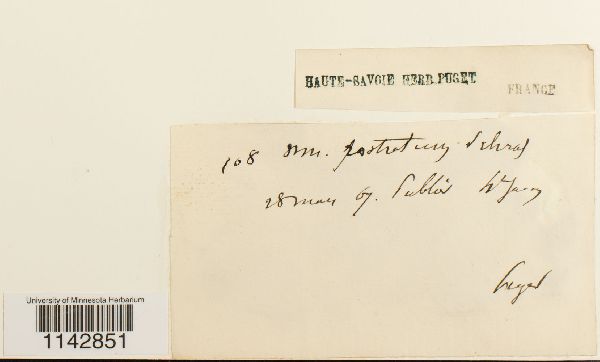 HAUTE-SAVOIE HERB. PUGET
FRANCE
108 Mn. rostratum Schrad
28 mars 67. Publier Hte Savoy
Puget
University of Minnesota Herbarium
1142851